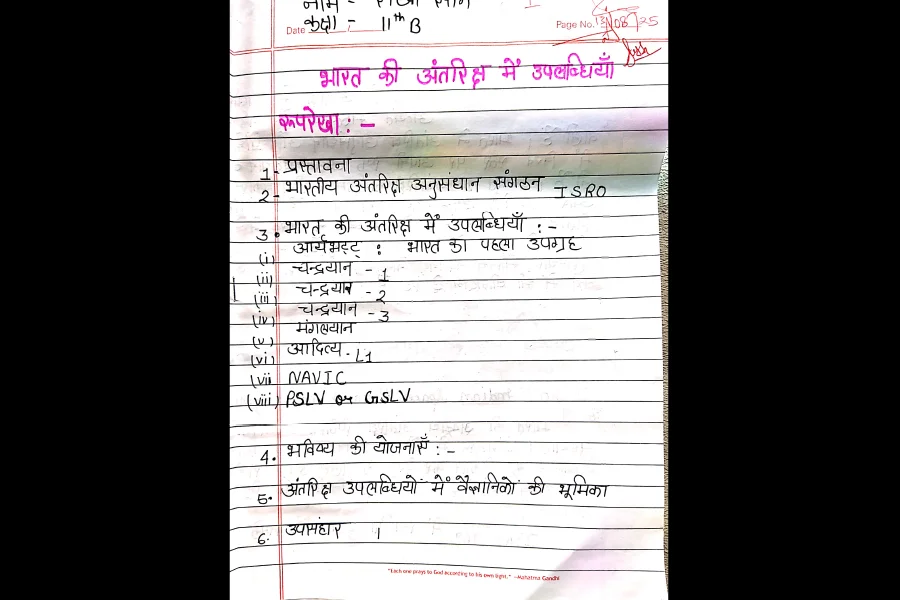 नाम -
Date कक्षा :- 11th B Page No. 08/25
भारत की अंतरिक्ष में उपलब्धियाँ
रूपरेखा : -
1- प्रस्तावना
2- भारतीय अंतरिक्ष अनुसंधान संगठन ISRO
3. भारत की अंतरिक्ष में उपलब्धियाँ :-
(i) आर्यभट्ट : भारत का पहला उपग्रह
(ii) चन्द्रयान - 1
(iii) चन्द्रयान - 2
(iv) चन्द्रयान - 3
(v) मंगलयान
(vi) आदित्य - L1
(vii) NAVIC
(viii) PSLV or GSLV
4. भविष्य की योजनाएँ : -
5. अंतरिक्ष उपलब्धियों में वैज्ञानिकों की भूमिका
6. उपसंहार ।
"Each one prays to God according to his own light." -Mahatma Gandhi